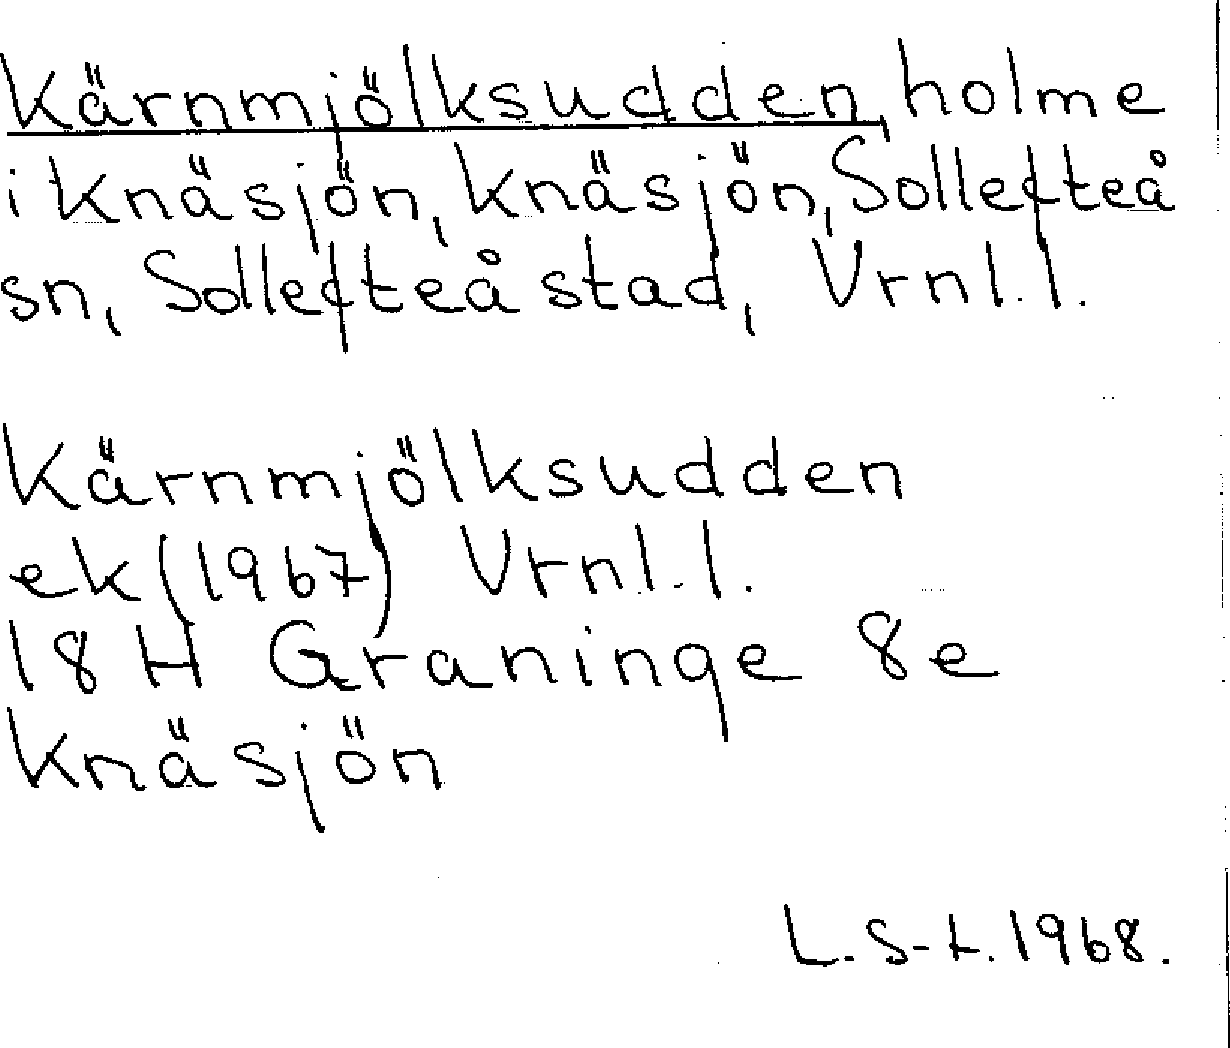 Kärnmjölksudden, holme
i Knäsjön, Knäsjön, Sollefteå
sn, Sollefteå stad, Vrnl. l.
Kärnmjölksudden
ek (1967) Vrnl. l.
18 H Graninge 8e
Knäsjön
L. S-t. 1968.